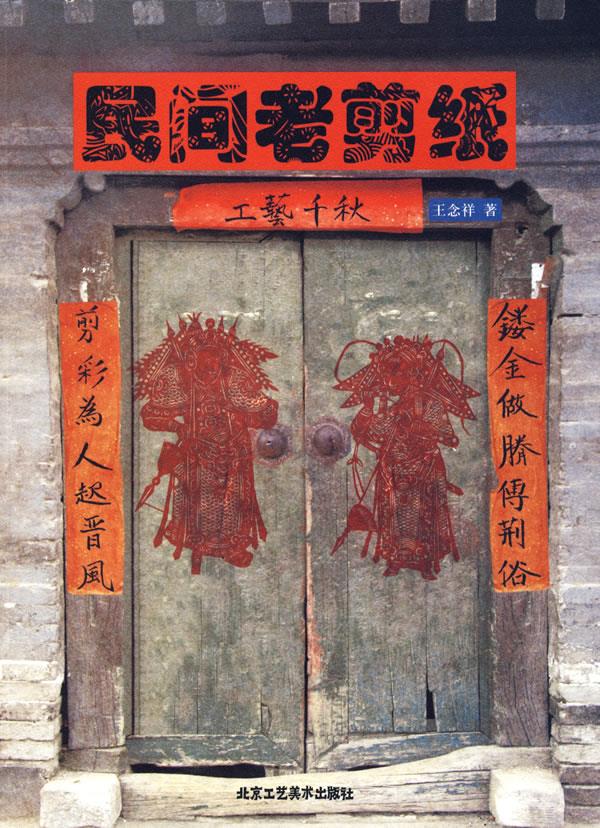 民间老剪纸
工藝千秋
王念祥 著
镂金做勝傳荆俗
剪彩為人起晋風
北京工艺美术出版社